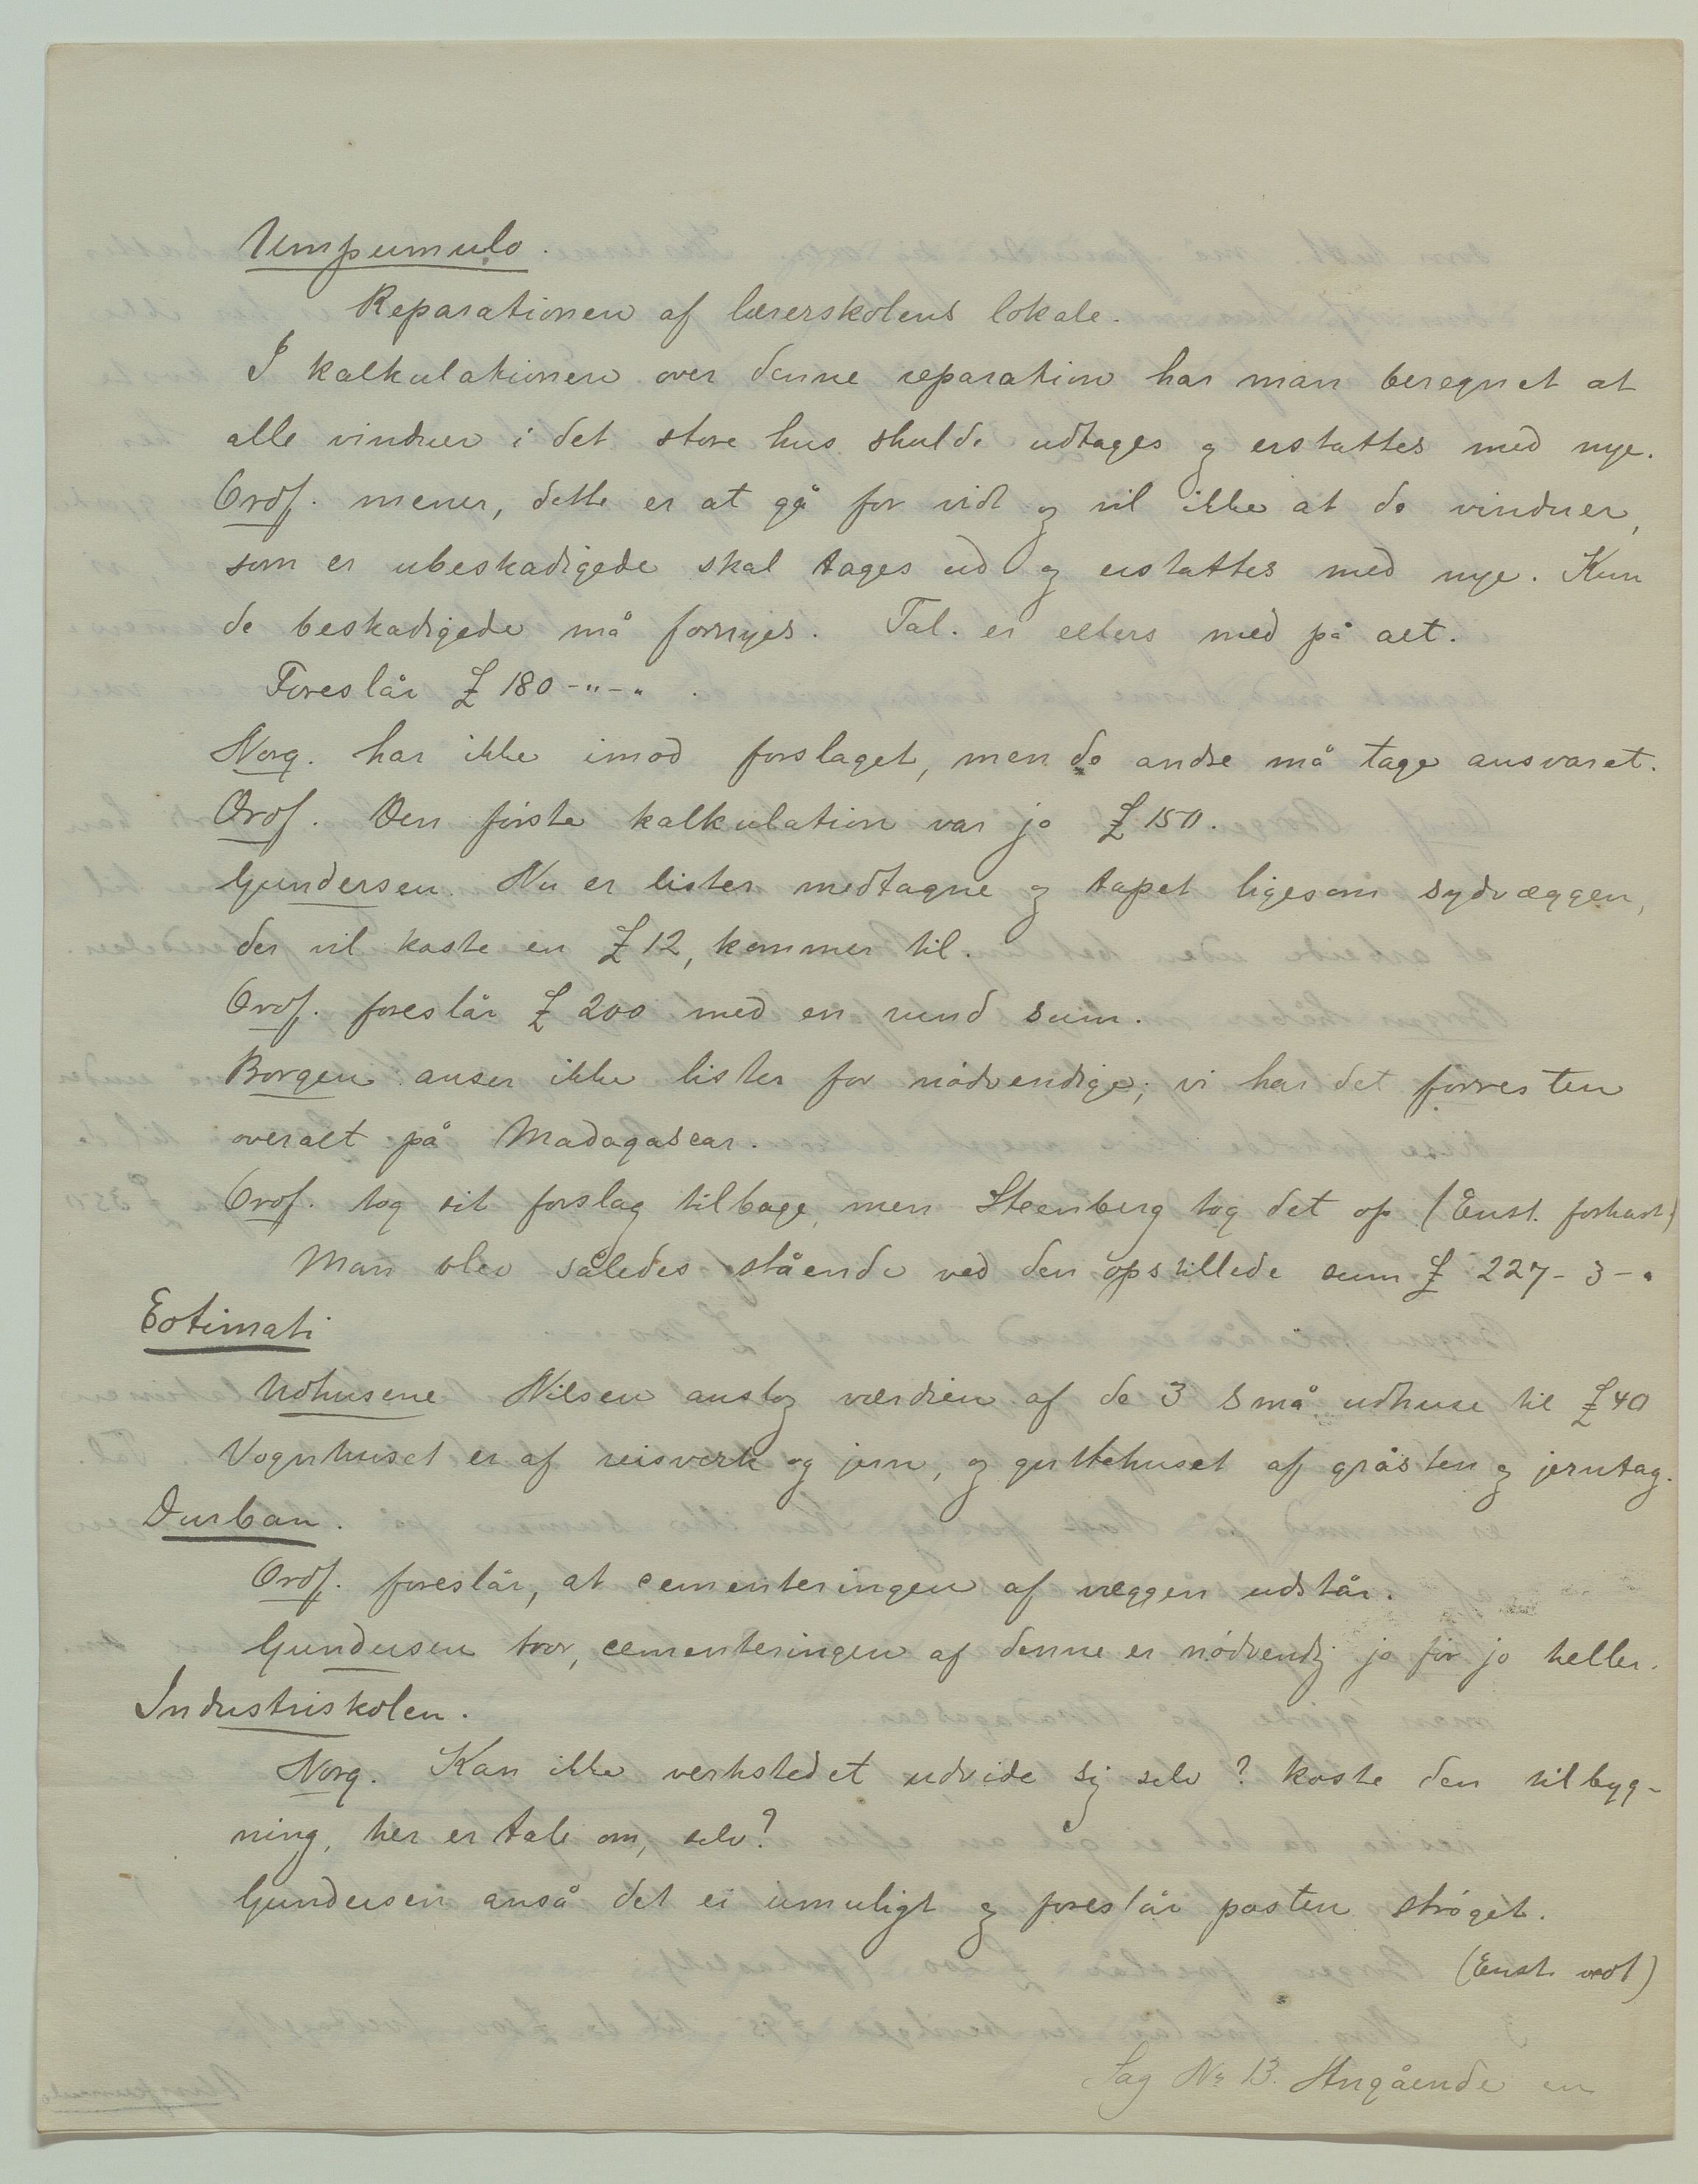 Umpumulo.
Reparationen af lærerskolens lokale.
I kalkulationen over denne reparation har man beregnet at
alle vinduer i det store hus skulde udtages og erstattes med nye.
Ordf. mener, dette er at gå for vidt og vil ikke at de vinduer,
som er ubeskadigede skal tages ud og erstattes med nye. Kun
de beskadigede må fornyes. Tal. er ellers med på alt.
Foreslår £ 180-"-"
Norg. har ikke imod forslaget, men de andre må tage ansvaret.
Ordf. Den første kalkulation var jo £ 150.
Gundersen. Nu er lister medtagne og tapet ligesom sydvæggen,
der vil koste en £ 12, kommer til.
Ordf. foreslår £ 200 med en rund sum.
Borgen anser ikke lister for nødvendige; vi har det forresten
overalt på Madagascar.
Ordf. tog sit forslag tilbage, men Steenberg tog det op (Enst. forkast)
Man blev således stående ved den opstillede sum £ 227-3-"
Eotimati
Udhusene Nilsen anslog værdien af de 3 små udhuse til £40
Vognhuset er af reisverk og jern, og guttehuset af gråsten og jerntag.
Durban.
Ordf. foreslår, at cementeringen af væggen udstår.
Gundersen tror, cementeringen af denne er nødvendig jo før jo heller.
Industriskolen.
Norg. Kan ikke verkstedet udvide sig selv? koste den tilbyg-
ning, her er tale om, selv?
Gundersen anså det ei umuligt og foreslår posten strøget.
(Enst. vedt)
Sag No 13. Angående en